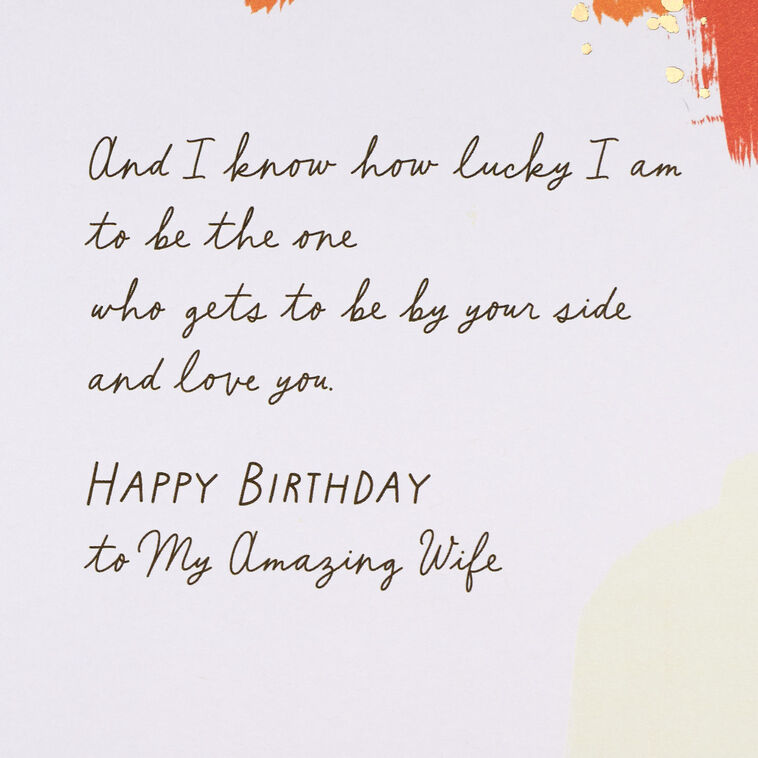 And I know how lucky I am
to be the one
who gets to be by your side
and love you.
HAPPY BIRTHDAY
to My Amazing Wife